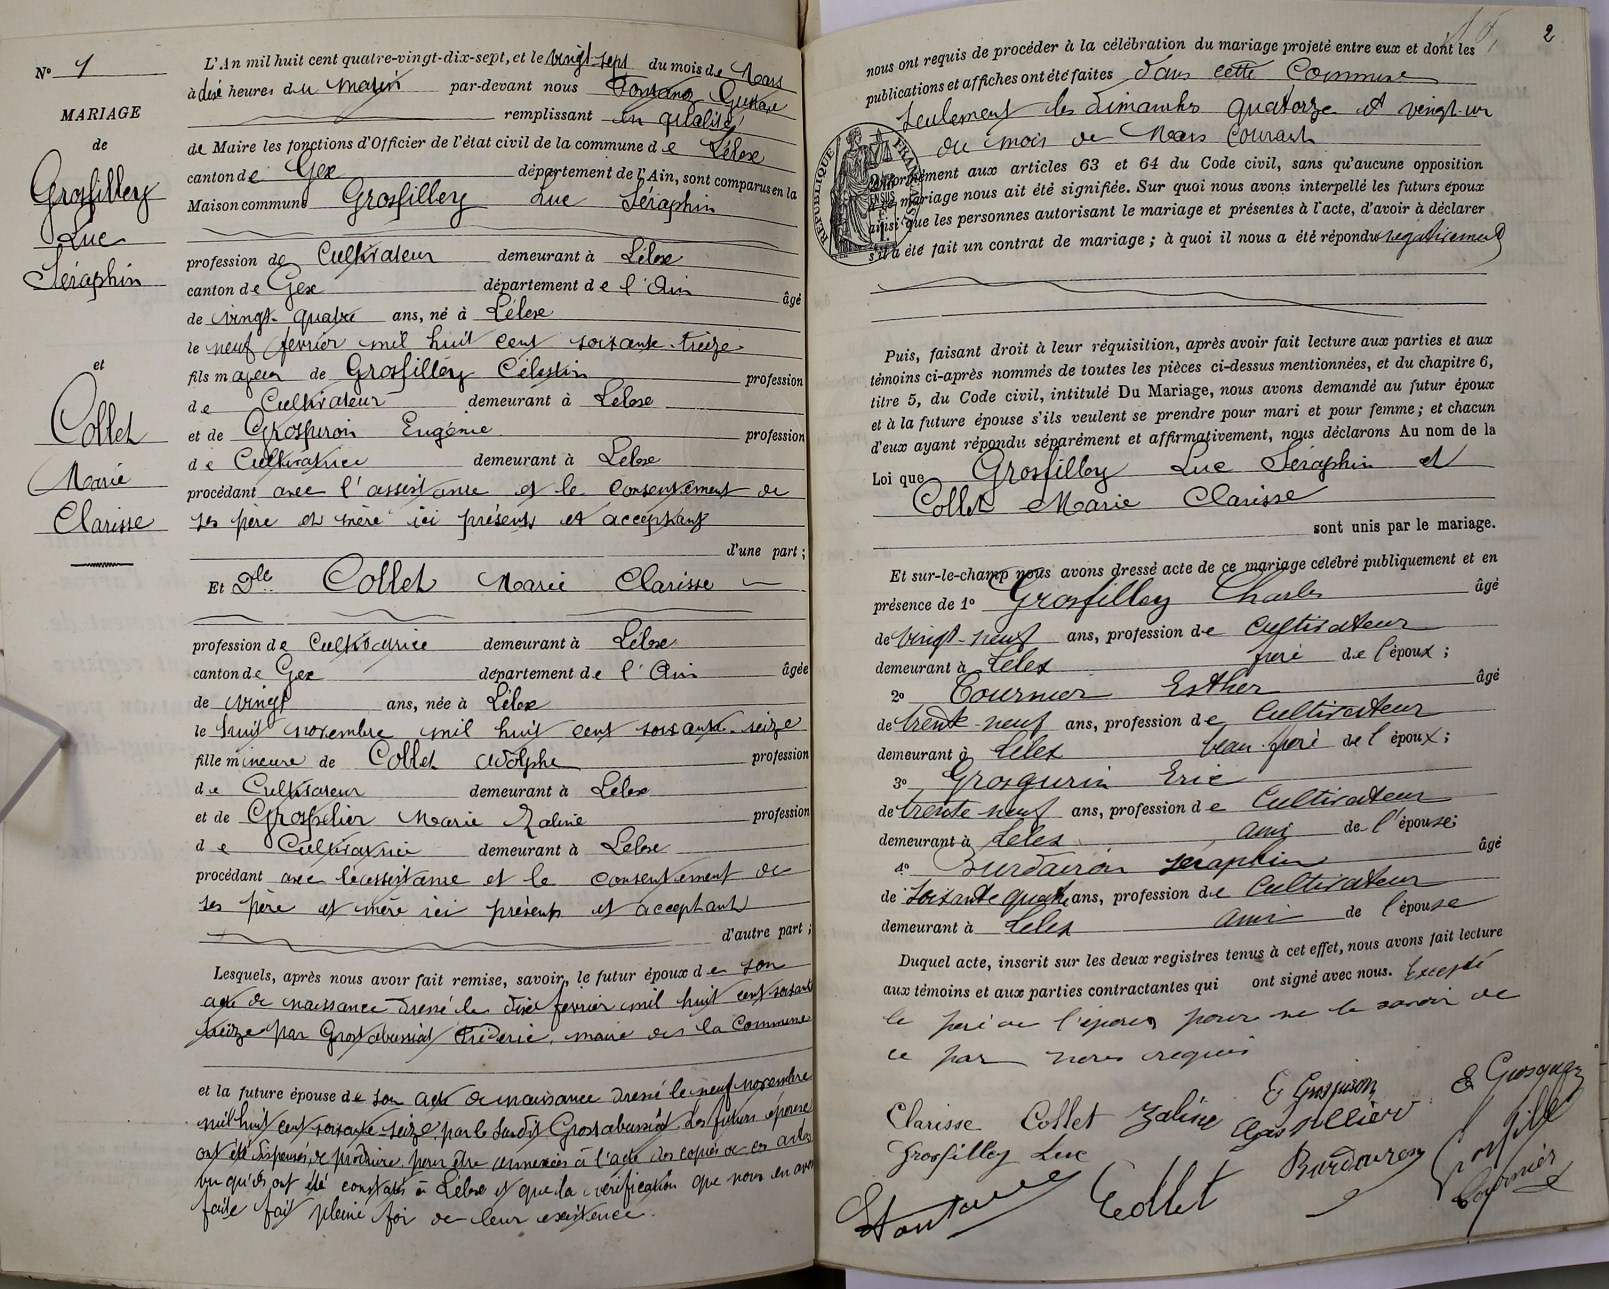 N° 1
MARIAGE
de
Grosfilley
Luc
Séraphin
et
Collet
Marie
Clarisse
L'An mil huit cent quatre-vingt-dix-sept, et le vingt-sept du mois de Mars
à dix heures du matin par-devant nous Fontana Gustave
remplissant en qualité
de Maire les fonctions d'Officier de l'état civil de la commune de Lélex
canton de Gex département de l'Ain, sont comparus en la
Maison commune Grosfilley Luc Séraphin
profession de Cultivateur demeurant à Lélex
canton de Gex département de l'Ain âgé
de vingt-quatre ans, né à Lélex
le neuf février mil huit cent soixante-treize
fils majeur de Grosfilley Célestin profession
de Cultivateur demeurant à Lélex
et de Grospiron Eugénie profession
de Cultivatrice demeurant à Lélex
procédant avec l'assistance et le consentement de
ses père et mère ici présents et acceptant
d'une part ;
Et Dlle Collet Marie Clarisse
profession de Cultivatrice demeurant à Lélex
canton de Gex département de l'Ain âgée
de vingt ans, née à Lélex
le huit novembre mil huit cent soixante-seize
fille mineure de Collet Adolphe profession
de Cultivateur demeurant à Lélex
et de Grospelier Marie Zaline profession
de Cultivatrice demeurant à Lélex
procédant avec l'assistance et le consentement de
ses père et mère ici présents et acceptant
d'autre part ;
Lesquels, après nous avoir fait remise, savoir, le futur époux de son
acte de naissance dressé le dix février mil huit cent soixante
treize par Grostabussiat Frédéric, maire de la Commune
et la future épouse de son acte de naissance dressé le neuf novembre
mil huit cent soixante seize par le susdit Grostabussiat, les futurs époux
ont été dispensés de produire pour être annexées à l'acte des copies de ces actes
vu qu'ils ont été constatés à Lélex et que la vérification que nous en avons
faite fait pleine foi de leur existence.
2
nous ont requis de procéder à la célébration du mariage projeté entre eux et dont les
publications et affiches ont été faites dans cette Commune
seulement les dimanches quatorze et vingt-un
du mois de Mars Courant
RÉPUBLIQUE FRANÇAISE
conformément aux articles 63 et 64 du Code civil, sans qu'aucune opposition
à ce mariage nous ait été signifiée. Sur quoi nous avons interpellé les futurs époux
ainsi que les personnes autorisant le mariage et présentes à l'acte, d'avoir à déclarer
s'il a été fait un contrat de mariage ; à quoi il nous a été répondu negativement
Puis, faisant droit à leur réquisition, après avoir fait lecture aux parties et aux
témoins ci-après nommés de toutes les pièces ci-dessus mentionnées, et du chapitre 6,
titre 5, du Code civil, intitulé Du Mariage, nous avons demandé au futur époux
et à la future épouse s'ils veulent se prendre pour mari et pour femme ; et chacun
d'eux ayant répondu séparément et affirmativement, nous déclarons Au nom de la
Loi que Grosfilley Luc Séraphin et
Collet Marie Clarisse
sont unis par le mariage.
Et sur-le-champ nous avons dressé acte de ce mariage célébré publiquement et en
présence de 1° Grosfilley Charles âgé
de vingt-neuf ans, profession de Cultivateur
demeurant à Lelex frère de l'époux ;
2° Tournier Esther âgé
de trente-neuf ans, profession de Cultivateur
demeurant à Lelex beau-frère de l'époux ;
3° Grosgurin Eric
de trente-neuf ans, profession de Cultivateur
demeurant à Lelex ami de l'épouse;
4° Burdairon Séraphin âgé
de soixante quatre ans, profession de Cultivateur
demeurant à Lelex ami de l'épouse
Duquel acte, inscrit sur les deux registres tenus à cet effet, nous avons fait lecture
aux témoins et aux parties contractantes qui ont signé avec nous. Excepté
le père de l'époux pour ne le savoir de
ce par nous requis
Clarisse Collet Zaline Grospellier E Grospiron E Grosgurin
Grosfilley Luc
Collet Burdairon Grosfilley
Tournier